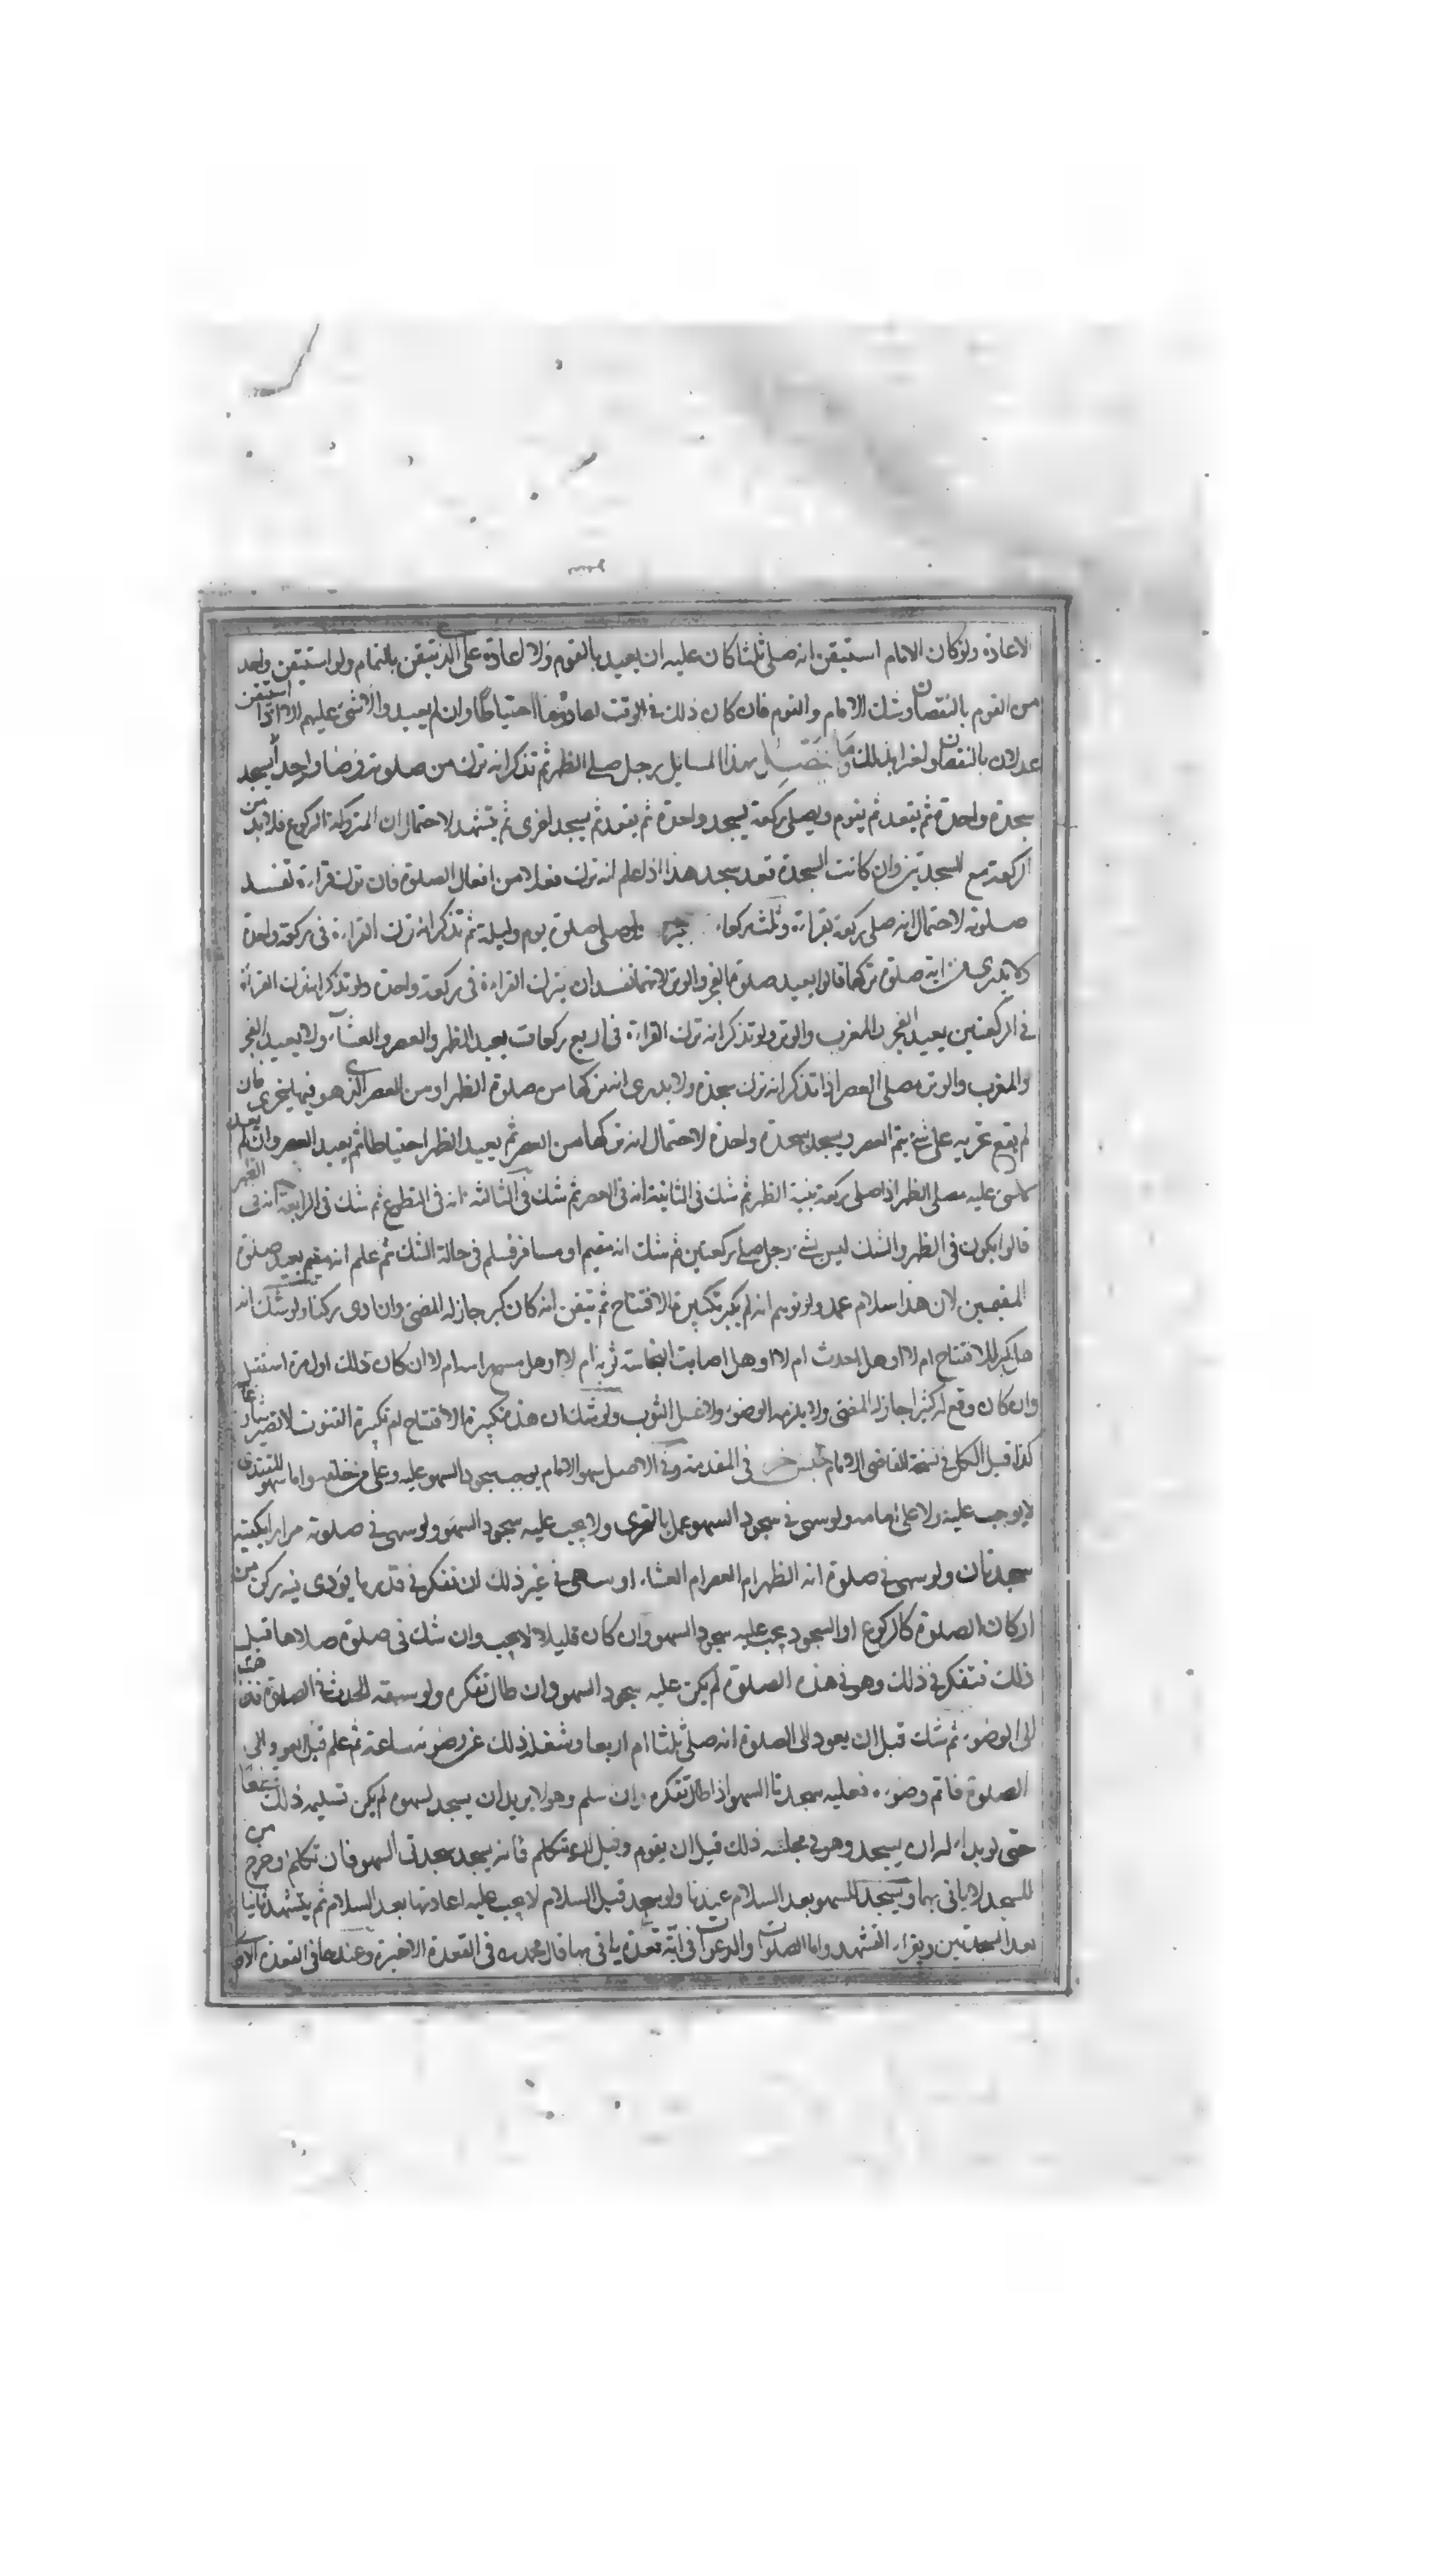 الاعادة ولو كان الامام استيقن انه صلى ثلثا كان عليه ان يعيد بالقوم ولا اعادة على الذي تيقن بالتمام ولو استيقن واحد
من القوم بالنقصان وشك الامام والقوم فان كان ذلك في الوقت اعادوها احتياطا وان لم يعيدوا لا شئ عليهم الا اذا استيقن
عدلان بالنقصان واخبرا بذلك ومما يتصل بهذا المسايل رجل صلى الظهر ثم تذكر انه ترك من صلوته فرضا واحدا يسجد
سجدة واحدة ثم يقعد ثم يقوم ويصلى ركعة يسجد واحدة ثم يقعد ثم يسجد اخرى ثم يتشهد لاحتمال ان المتروكة الركوع فلا بد من
الركعة مع السجدتين وان كانت السجدة فقد سجد هذا اذا علم انه ترك فعلا من افعال الصلوة فان ترك قراءة تفسد
صلوته لاحتمال انه صلى ركعة بقراءة وثلث ركعات صلى صلوة يوم وليلة ثم تذكر انه ترك القراءة في ركعة واحدة
ولا يدري من اية صلوة تركها قالوا يعيد صلوة الفجر والوتر لانهما تفسدان بترك القراءة في ركعة واحدة ولو تذكر انه ترك القراءة
في الركعتين يعيد الفجر والمغرب والوتر ولو تذكر انه ترك القراءة في اربع ركعات يعيد الظهر والعصر والعشاء ولا يعيد الفجر
والمغرب والوتر مصلى العصر اذا تذكر انه ترك سجدة ولا يدرى انه تركها من صلوة الظهر او من العصر الذي هو فيها يتحرى فان
لم يقع تحريه على شئ يتم العصر ويسجد سجدة واحدة لاحتمال انه تركها من العصر ثم يعيد الظهر احتياطا ثم يعيد العصر وان لم يعد
لا شئ عليه مصلى الظهر اذا صلى ركعة بنية الظهر ثم شك في الثانية انه في العصر ثم شك في الثالثة انه في التطوع ثم شك في الرابعة انه في الظهر
قالوا يكون في الظهر والشك ليس بشئ رجل صلى ركعتين ثم شك انه مقيم او مسافر فسلم في حالة الشك ثم علم انه مقيم يعيد صلوة
المقيمين لان هذا سلام عمد ولو توهم انه لم يكبر تكبيرة الافتتاح ثم تيقن انه كان كبر جاز له المضى وان ادى ركنا ولو شك انه
هل كبر للافتتاح ام لا او هل احدث ام لا او هل اصابت النجاسة ثوبه ام لا او هل مسح راسه ام لا ان كان ذلك اول مرة استقبل
وان كان وقع له كثيرا جاز له المضى ولا يلزمه الوضوء ولا غسل الثوب ولو شك ان هذه تكبيرة الافتتاح ام تكبيرة القنوت لا تصير
كذا قيل الكل في نسخة القاضى الامام في المقدمة وفي الاصل سهو الامام يوجب سجود السهو عليه وعلى من خلفه واما سهو المقتدى
لا يوجب عليه ولا على امامه ولو سهى في سجود السهو عمل بالتحرى ولا يجب عليه سجود السهو ولو سهى في صلوته مرارا يكفيه
سجدتان ولو سهى في صلوة انه الظهر ام العصر ام العشاء او سهى في غير ذلك ان تفكر في قدر ما يؤدى فيه ركن من
اركان الصلوة كالركوع او السجود يجب عليه سجود السهو وان كان قليلا لا يجب وان شك في صلوة صلاها قبل
ذلك فتفكر في ذلك وهو في هذه الصلوة لم يكن عليه سجود السهو وان طال تفكره ولو سبقه الحدث في الصلوة فذهب
الى الوضوء ثم شك قبل ان يعود الى الصلوة انه صلى ثلثا ام اربعا وشغله ذلك عن وضوئه ساعة ثم علم قبل العود الى
الصلوة فاتم وضوءه فعليه سجدتا السهو اذا طال تفكره وان سلم وهو لا يريد ان يسجد لسهوه لم يكن تسليمه ذلك قطعا
حتى لو بدا له ان يسجد وهو في مجلسه ذلك قبل ان يقوم وقبل ان يتكلم فانه يسجد سجدتي السهو فان تكلم او خرج من
المسجد لا ياتى بهما ويسجد للسهو بعد السلام عندنا ولو سجد قبل السلام لا يجب عليه اعادتها بعد السلام ثم يتشهد ثانيا
بعد السجدتين ويقراء التشهد واما الصلوات والدعوات في اية قعدة ياتى بها قال محمد في القعدة الاخيرة وعندهما في القعدة